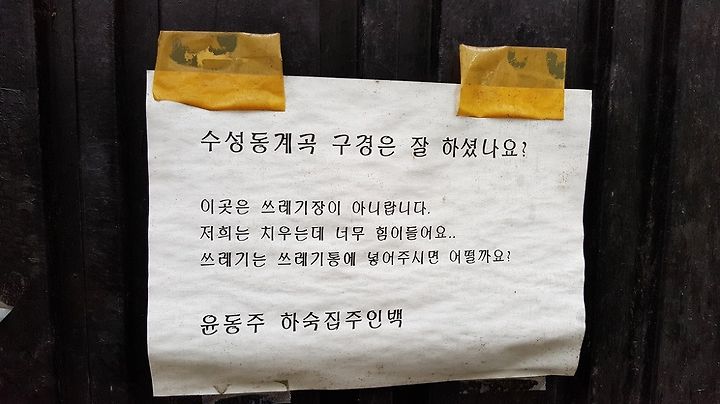 수성동계곡 구경은 잘 하셨나요?
이곳은 쓰레기장이 아니랍니다.
저희는 치우는데 너무 힘이들어요..
쓰레기는 쓰레기통에 넣어주시면 어떨까요?
윤동주 하숙집주인백